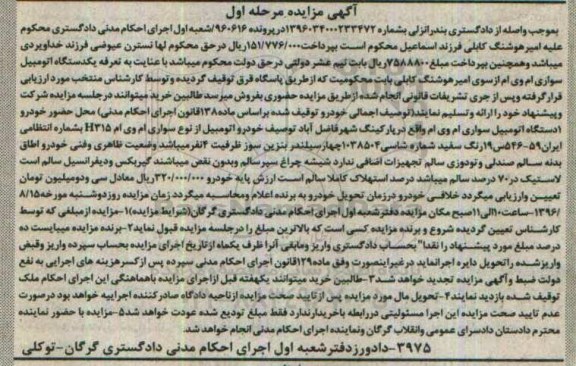 آگهی مزایده مرحله اول
بموجب واصله از دادگستری بندرانزلی بشماره ۱۳۹۶۰۳۴۰۰۰۲۳۳۴۷۲ درپرونده ۹۶۰۶۱۶/شعبه اول اجرای احکام مدنی دادگستری محکوم
علیه امیر هوشنگ کابلی فرزند اسماعیل محکوم است بپرداخت ۱۵۱/۷۷۶/۰۰۰ریال در حق محکوم لها نسترن عیوضی فرزند خداوردی
میباشد وهمچنین بپرداخت مبلغ ۷۵۸۸۸۰۰ریال بابت نیم عشر دولتی درحق دولت محکوم میباشد با عنایت به تعرفه یکدستگاه اتومبیل
سواری ام وی ام ازسوی امیر هوشنگ کابلی بابت محکومیت که ازطریق پاسگاه قرق توقیف گردیده و توسط کارشناس منتخب مورد ارزیابی
قرار گرفته وپس از جری تشریفات قانونی انجام شده ازطریق مزایده حضوری بفروش میرسد طالبین خرید میتوانند درجلسه مزایده شرکت
وپیشنهاد خود را ارائه وتسلیم نمایند(توصیف اجمالی خودرو توقیف شده براساس ماده ۱۳۸قانون اجرای احکام مدنی) محل حضور خودرو
۱دستگاه اتومبیل سواری ام وی ام واقع درپارکینگ شهرفاضل آباد توصیف خودرو اتومبیل از نوع سواری ام وی ام H۳۱۵ بشماره انتظامی
ایران ۵۹-۵۴۶س۱۹رنگ سفید شماره شاسی ۱۰۳۸۵۰۴چهارسیلندر بنزین سوز ظرفیت ۴نفرمیباشد وضعیت ظاهری وفنی خودرو اطاق
بدنه سالم صندلی وتودوزی سالم تجهیزات اضافی ندارد شیشه چراغ سپرسالم وبدون نقص میباشند گیربکس ودیفرانسیل سالم است
لاستیک در۷۰ درصد سالم میباشد درصد استهلاک کاملا سالم است ارزش پایه خودرو ۳۲۰/۰۰۰/۰۰۰ریال معادل سی ودومیلیون تومان
تعیین وارزیابی میگردد خلافی خودرو درزمان تحویل خودرو به برنده اعلام ومحاسبه میگردد زمان مزایده روزدوشنبه مورخه ۸/۱۵
/۱۳۹۶-ساعت۱۰الی۱۱صبح مکان مزایده دفتر شعبه اول اجرای احکام مدنی دادگستری گرگان(شرایط مزایده)۱-مزایده ازمبلغی که توسط
کارشناس تعیین گردیده شروع و برنده مزایده کسی است که بالاترین مبلغ را درجلسه مزایده قبول نماید۲-برنده مزایده میبایست ده
درصد مبلغ مورد پیشنهاد را نقدا" بحساب دادگستری واریز ومابقی آنرا ظرف یکماه ازتاریخ اجرای مزایده بحساب سپرده واریز وقبض
واریز شده را تحویل دایره اجرا نماید در غیراینصورت وفق ماده ۱۲۹قانون اجرای احکام مدنی سپرده پس ازکسر هزینه های اجرایی به نفع
دولت ضبط وآگهی مزایده تجدید خواهد شد۳-طالبین خرید میتوانند یکهفته قبل ازاجرای مزایده باهماهنگی این اجرای احکام ملک
توقیف شده بازدید نمایند۴-تحویل مال مورد مزایده پس ازتایید صحت مزایده ازناحیه دادگاه صادرکننده اجراییه خواهد بود درصورت
عدم تایید صحت مزایده این اجرا مسئولیتی دررابطه باخریدارندارد فقط مبلغ تودیع شده عودت خواهد شد۵-مزایده با حضور نماینده
محترم دادستان دادسرای عمومی وانقلاب گرگان ونماینده اجرای احکام مدنی انجام خواهد شد.
۳۹۷۵-دادورزدفترشعبه اول اجرای احکام مدنی دادگستری گرگان-توکلی